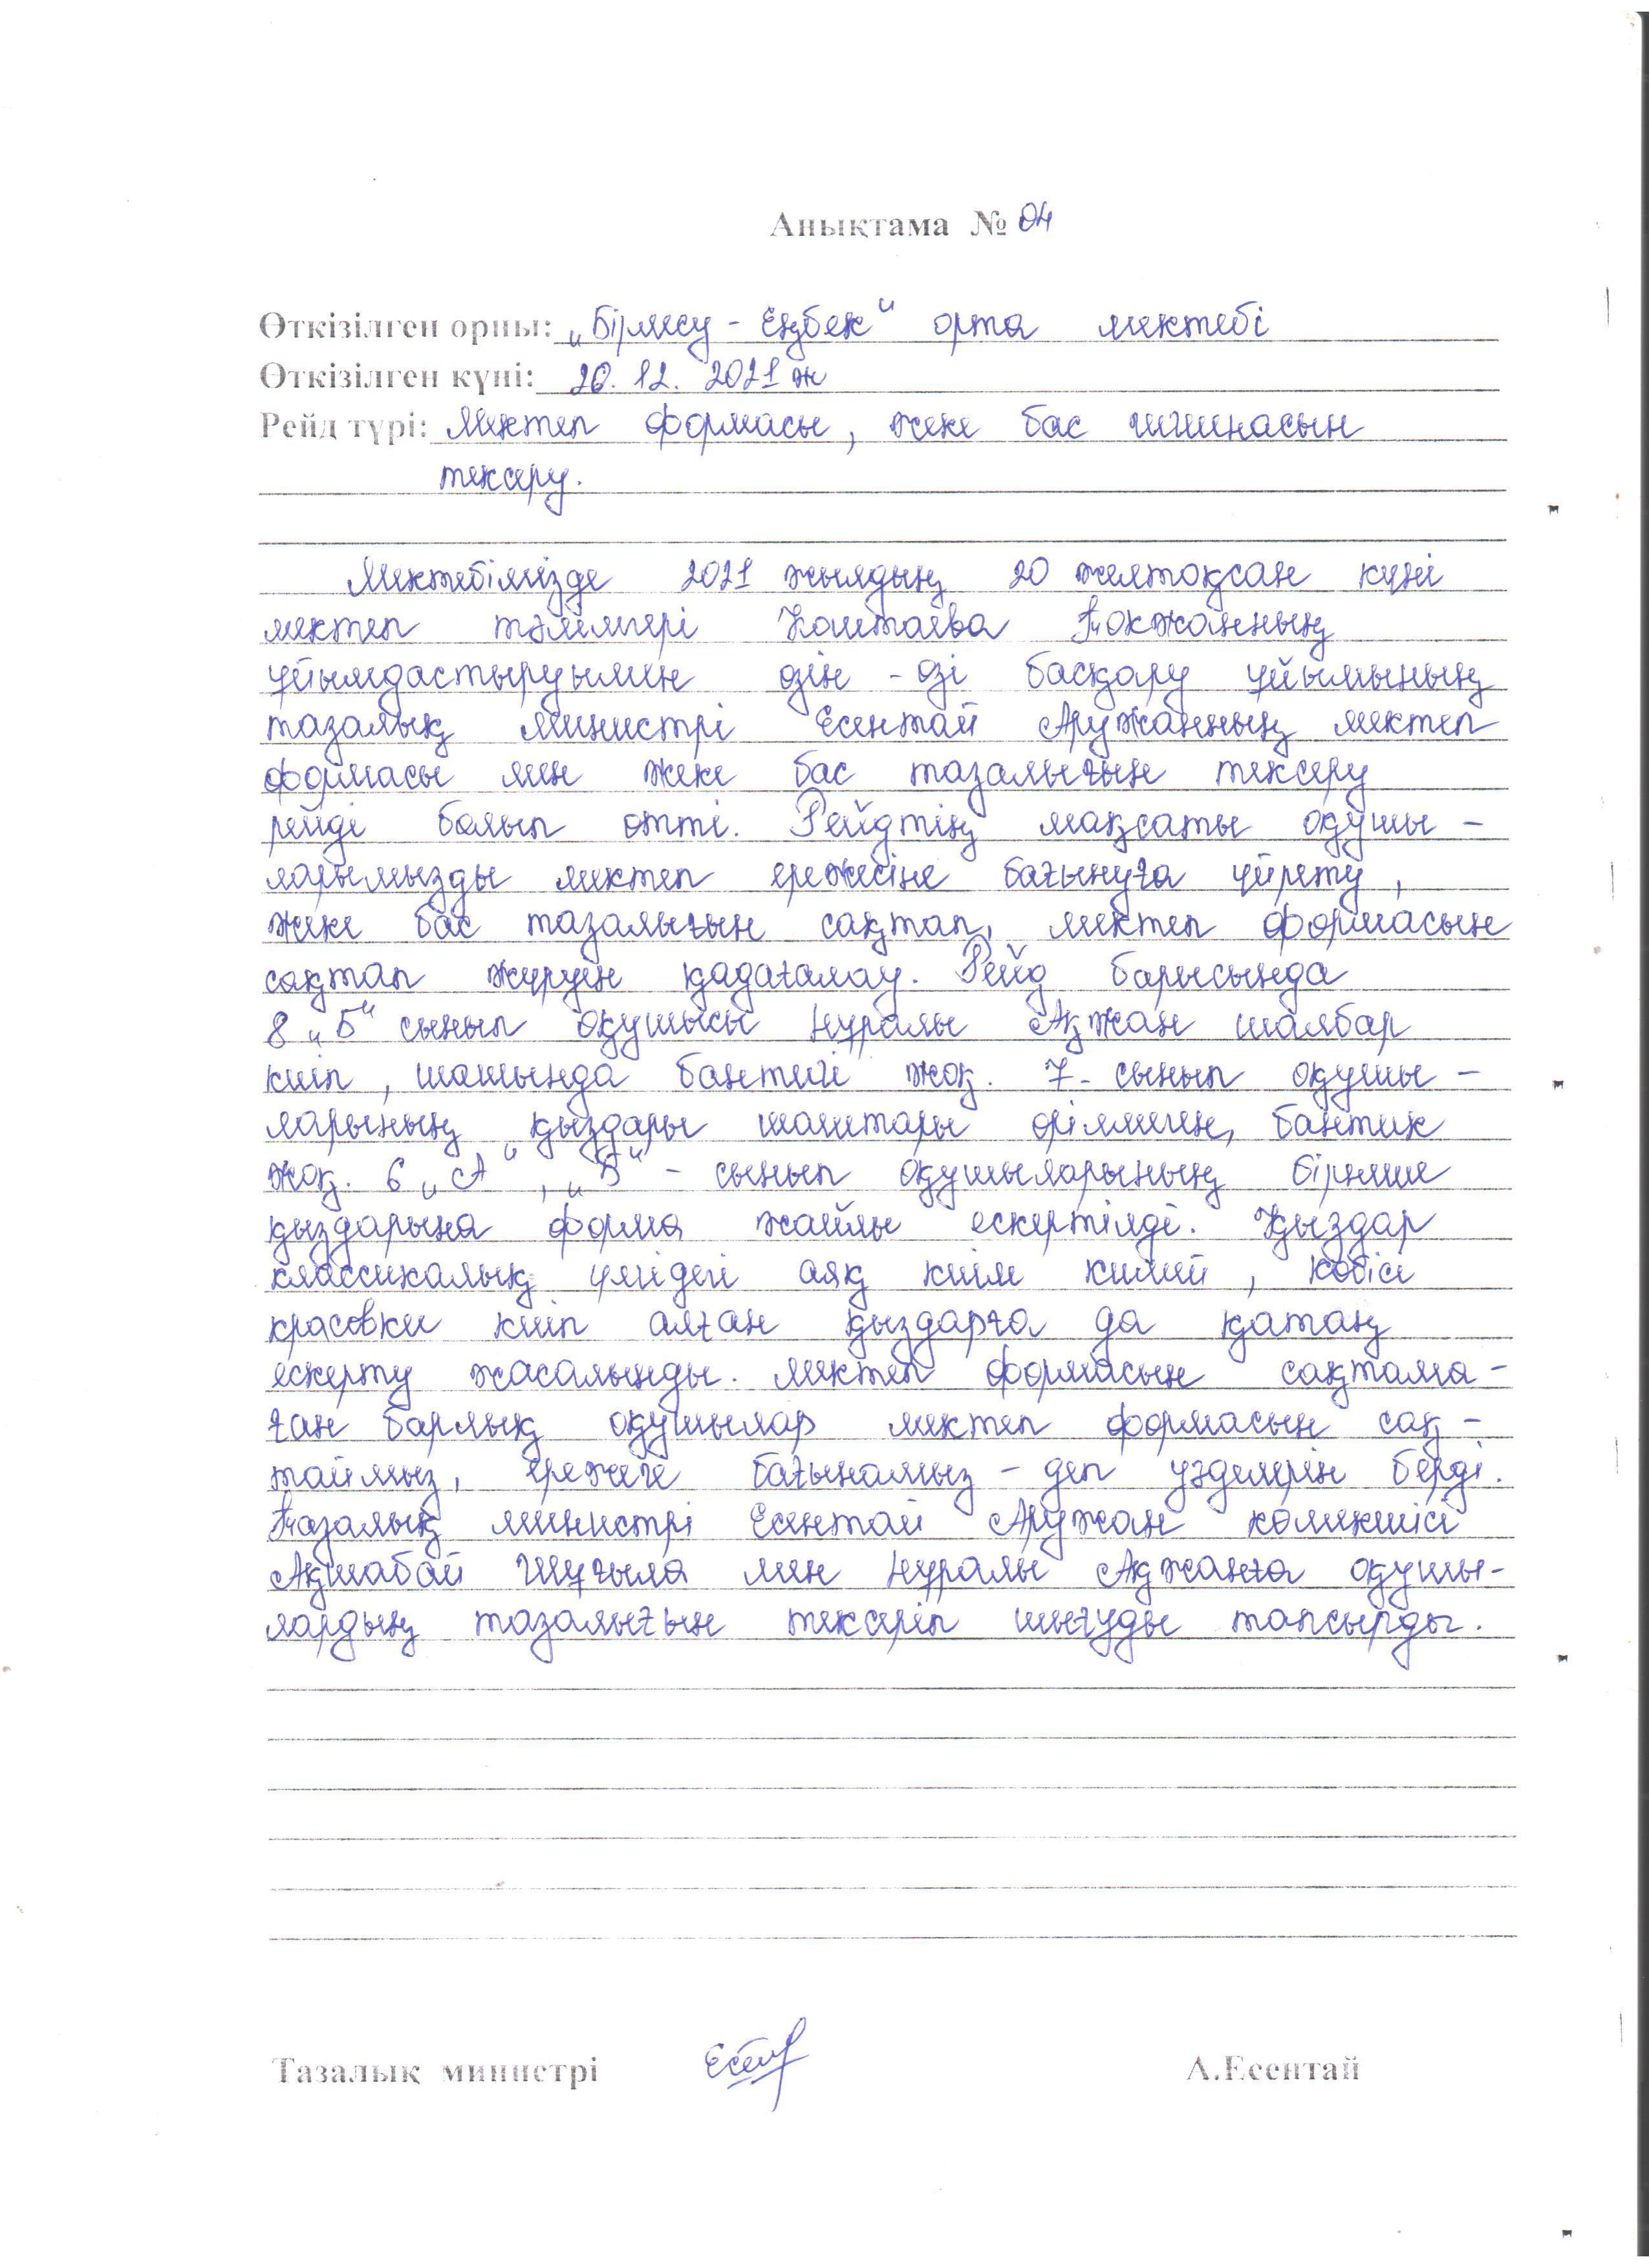 Анықтама № 04
Өткізілген орны: „Бірлесу - Еңбек“ орта мектебі
Өткізілген күні: 20. 12. 2021 ж
Рейд түрі: Мектеп формасы, жеке бас гигинасын
тексеру.
Мектебімізде 2021 жылдың 20 желтоқсан күні
мектеп тәлімгері Коштаева Токжанның
ұйымдастыруымен өзін - өзі басқару ұйымының
тазалық министрі Есентай Аружанның мектеп
формасы мен жеке бас тазалығын тексеру
рейді болып өтті. Рейдтің мақсаты оқушы -
ларымызды мектеп ережесіне бағынуға үйрету,
жеке бас тазалығын сақтап, мектеп формасын
сақтап жүруін қадағалау. Рейд барысында
8 „Б“ сынып оқушысы Нұралы Ақжан шалбар
киіп, шашында бантигі жоқ. 7 - сынып оқушы -
ларының қыздары шаштары өрілмеген, бантик
жоқ. 6 „А“, „В“ - сынып оқушыларының бірнеше
қыздарына форма жайлы ескертілді. Қыздар
классикалық үлгідегі аяқ киім кимей, көбісі
красовки киіп алған қыздарға да қатаң
ескерту жасалынды. Мектеп формасын сақтама -
ған барлық оқушылар мектеп формасын сақ -
таймыз, ережеге бағынамыз - деп уәделерін берді.
Тазалық министрі Есентай Аружан көмекшісі
Ақшабай Шұғыла мен Нұралы Ақжанға оқушы-
лардың тазалығын тексеріп шығуды тапсырды.
Тазалық министрі А.Есентай